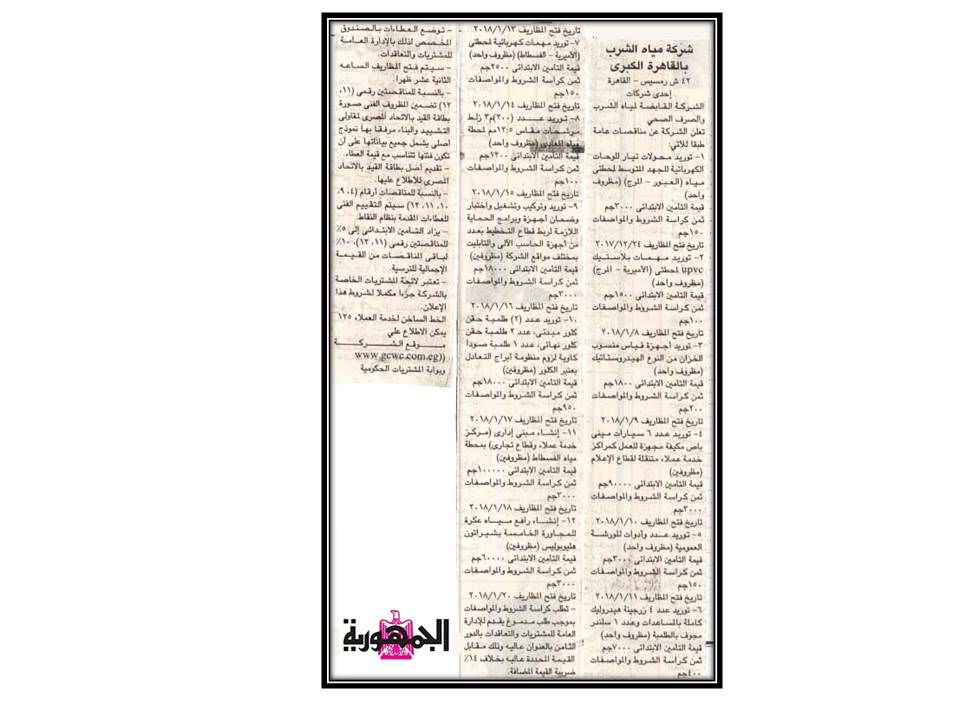 شركة مياه الشرب
بالقاهرة الكبرى
٤٢ ش رمسيس - القاهرة
إحدى شركات
الشركة القابضة لمياه الشرب
والصرف الصحي
تعلن الشركة عن مناقصات عامة
طبقا للآتي:
١- توريد محولات تيار للوحات
الكهربائية للجهد المتوسط لمحطتى
مياه (العبور - المرج) (مظروف
واحد)
قيمة التامين الابتدائى ٣٠٠٠جم
ثمن كراسة الشروط والمواصفات
١٥٠جم
تاريخ فتح المظاريف ٢٠١٧/١٢/٢٤
٢- توريد مهمات بلاستيك
upvc لمحطتى (الأميرية - المرج)
(مظروف واحد)
قيمة التامين الابتدائى ١٥٠٠جم
ثمن كراسة الشروط والمواصفات
١٠٠جم
تاريخ فتح المظاريف ٢٠١٨/١/٨
٣- توريد أجهزة قياس منسوب
الخزان من النوع الهيدروستاتيك
(مظروف واحد)
قيمة التامين الابتدائى ١٨٠٠جم
ثمن كراسة الشروط والمواصفات
٢٠٠جم
تاريخ فتح المظاريف ٢٠١٨/١/٩
٤- توريد عدد ٦ سيارات مينى
باص مكيفة مجهزة للعمل كمراكز
خدمة عملاء متنقلة لقطاع الإعلام
(مظروفين)
قيمة التامين الابتدائى ٩٠٠٠٠جم
ثمن كراسة الشروط والمواصفات
٣٠٠٠جم
تاريخ فتح المظاريف ٢٠١٨/١/١٠
٥- توريد عدد وأدوات للورشة
العمومية (مظروف واحد)
قيمة التامين الابتدائى ٣٠٠٠جم
ثمن كراسة الشروط والمواصفات
١٥٠جم
تاريخ فتح المظاريف ٢٠١٨/١/١١
٦- توريد عدد ٤ زرجينة هيدروليك
كاملة بالمساعدات وعدد ١ سلندر
مجوف بالطلمبة (مظروف واحد)
قيمة التامين الابتدائى ٧٠٠٠جم
ثمن كراسة الشروط والمواصفات
٤٠٠جم
تاريخ فتح المظاريف ٢٠١٨/١/١٣
٧- توريد مهمات كهربائية لمحطتى
(الأميرية - الفسطاط) (مظروف واحد)
قيمة التامين الابتدائى ٢٥٠٠جم
ثمن كراسة الشروط والمواصفات
١٥٠جم
تاريخ فتح المظاريف ٢٠١٨/١/١٤
٨- توريد عدد (٢٠٠)م٣ زلط
مرشحات مقاس ١٢،٥مم لمحطة
مياه المعادى (مظروف واحد)
قيمة التامين الابتدائى ١٢٠٠جم
ثمن كراسة الشروط والمواصفات
١٠٠جم
تاريخ فتح المظاريف ٢٠١٨/١/١٥
٩- توريد وتركيب وتشغيل واختبار
وضمان أجهزة وبرامج الحماية
اللازمة لربط قطاع التخطيط بعدد
من أجهزة الحاسب الآلى والتابليت
بمختلف مواقع الشركة (مظروفين)
قيمة التامين الابتدائى ١٨٠٠٠جم
ثمن كراسة الشروط والمواصفات
٣٠٠٠جم
تاريخ فتح المظاريف ٢٠١٨/١/١٦
١٠- توريد عدد (٢) طلمبة حقن
كلور مبدئى، عدد ٢ طلمبة حقن
كلور نهائى، عدد ١ طلمبة صودا
كاوية لزوم منظومة أبراج التعادل
بعنبر الكلور (مظروفين)
قيمة التامين الابتدائى ١٨٠٠٠جم
ثمن كراسة الشروط والمواصفات
٩٥٠جم
تاريخ فتح المظاريف ٢٠١٨/١/١٧
١١- إنشاء مبنى إدارى (مركز
خدمة عملاء وقطاع تجارى) بمحطة
مياه الفسطاط (مظروفين)
قيمة التامين الابتدائى ١٠٠٠٠٠جم
ثمن كراسة الشروط والمواصفات
٣٠٠٠جم
تاريخ فتح المظاريف ٢٠١٨/١/١٨
١٢- إنشاء رافع مياه عكرة
للمجاورة الخامسة بشيراتون
هليوبوليس (مظروفين)
قيمة التامين الابتدائى ٦٠٠٠٠جم
ثمن كراسة الشروط والمواصفات
٣٠٠٠جم
تاريخ فتح المظاريف ٢٠١٨/١/٢٠
- تطلب كراسة الشروط والمواصفات
بموجب طلب مدموغ يقدم للإدارة
العامة للمشتريات والتعاقدات بالدور
الثامن بالعنوان عاليه وذلك مقابل
القيمة المحددة عاليه بخلاف ١٤٪
ضريبة القيمة المضافة.
- توضع العطاءات بالصندوق
المخصص لذلك بالإدارة العامة
للمشتريات والتعاقدات.
- سيتم فتح المظاريف الساعه
الثانية عشر ظهرا.
- بالنسبة للمناقصتين رقمى (١١،
١٢) تضمين المظروف الفنى صورة
بطاقة القيد بالاتحاد المصرى لمقاولى
التشييد والبناء مرفقا بها نموذج
أصلى يشمل جميع بياناتها على أن
تكون فئتها تتناسب مع قيمة العطاء.
- تقديم أصل بطاقة القيد بالاتحاد
المصرى للإطلاع عليها.
- بالنسبة للمناقصات أرقام (٤، ٩،
١٠، ١١، ١٢) سيتم التقييم الفنى
للعطاءات المقدمة بنظام النقاط.
- يزاد التامين الابتدائى إلى ٥٪
للمناقصتين رقمى (١١، ١٢)، ١٠٪
لباقى المناقصات من القيمة
الإجمالية للترسية
- تعتبر لائحة المشتريات الخاصة
بالشركة جزءا مكملا لشروط هذا
الإعلان.
الخط الساخن لخدمة العملاء ١٢٥
يمكن الاطلاع علي
موقع الشركة
((www.gcwc.com.eg
وبوابة المشتريات الحكومية
الجمهورية